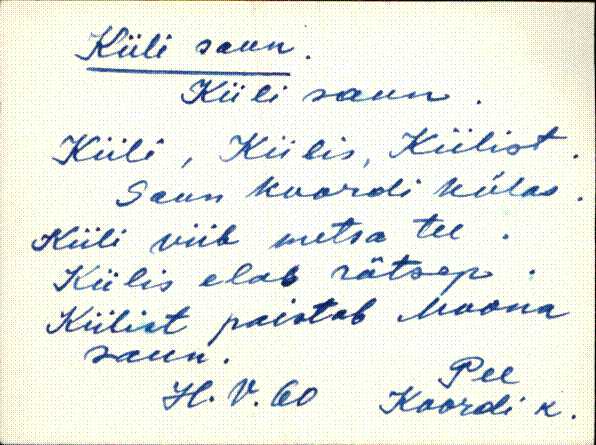 Küli saun.
Küli saun.
Küli, Külis, Külist.
Saun Koordi külas.
Küli viib metsa tee.
Külis elab rätsep.
Külist paistab Moona
saun.
H. V. 60 Pee
Koordi k.